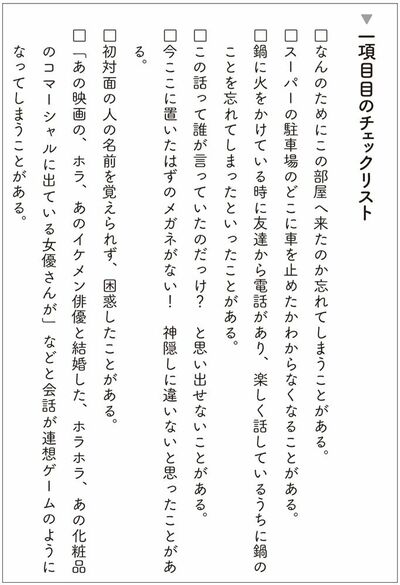 ▼一項目目のチェックリスト
□なんのためにこの部屋へ来たのか忘れてしまうことがある。
□スーパーの駐車場のどこに車を止めたかわからなくなることがある。
□鍋に火をかけている時に友達から電話があり、楽しく話しているうちに鍋の
ことを忘れてしまったといったことがある。
□この話って誰が言っていたのだっけ？　と思い出せないことがある。
□今ここに置いたはずのメガネがない！　神隠しに違いないと思ったことがあ
る。
□初対面の人の名前を覚えられず、困惑したことがある。
□「あの映画の、ホラ、あのイケメン俳優と結婚した、ホラホラ、あの化粧品
のコマーシャルに出ている女優さんが」などと会話が連想ゲームのように
なってしまうことがある。